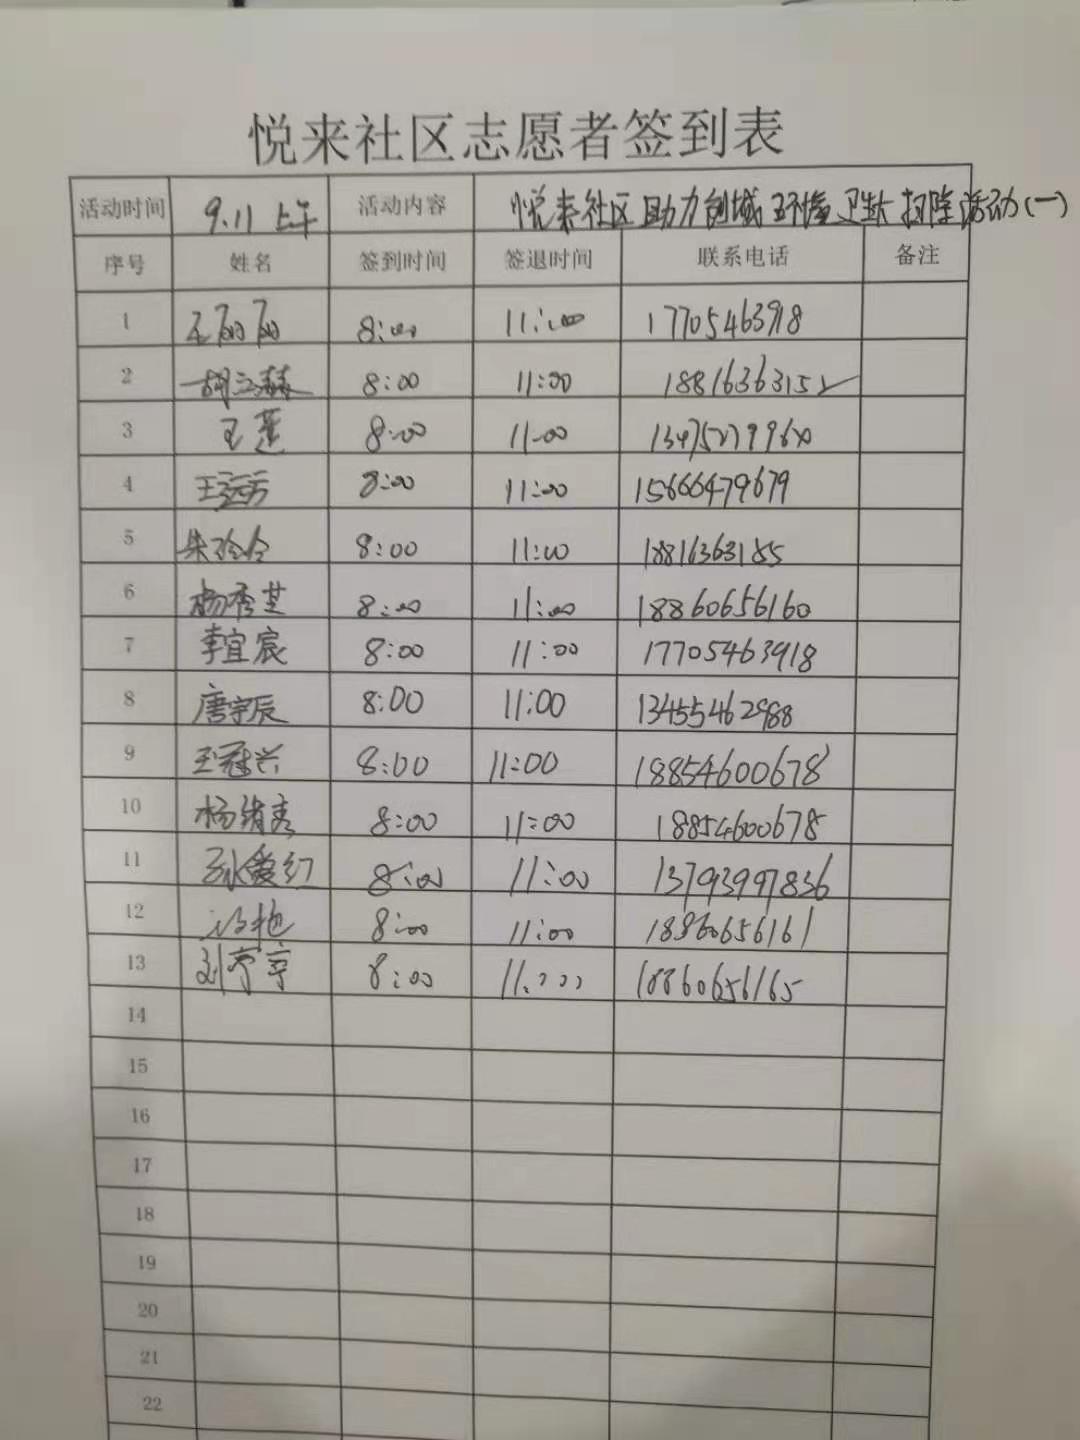 悦来社区志愿者签到表
活动时间 9.11 上午 活动内容 悦来社区助力创城环境卫生大扫除活动(一)
序号 姓名 签到时间 签退时间 联系电话 备注
1 王丽丽 8:00 11:00 17705463918
2 8:00 11:00 18816363152
3 王莲 8:00 11:00
4 王远方 8:00 11:00 15666479679
5 朱玲令 8:00 11:00 18816363185
6 杨秀芝 8:00 11:00 18860656160
7 李宜宸 8:00 11:00 17705463918
8 唐宇辰 8:00 11:00 13455462988
9 王冠兴 8:00 11:00 18854600678
10 杨绪秀 8:00 11:00 18854600678
11 张爱红 8:00 11:00 13793997836
12 8:00 11:00 18860656161
13 刘亭亭 8:00 11:00 18860656165
14
15
16
17
18
19
20
21
22